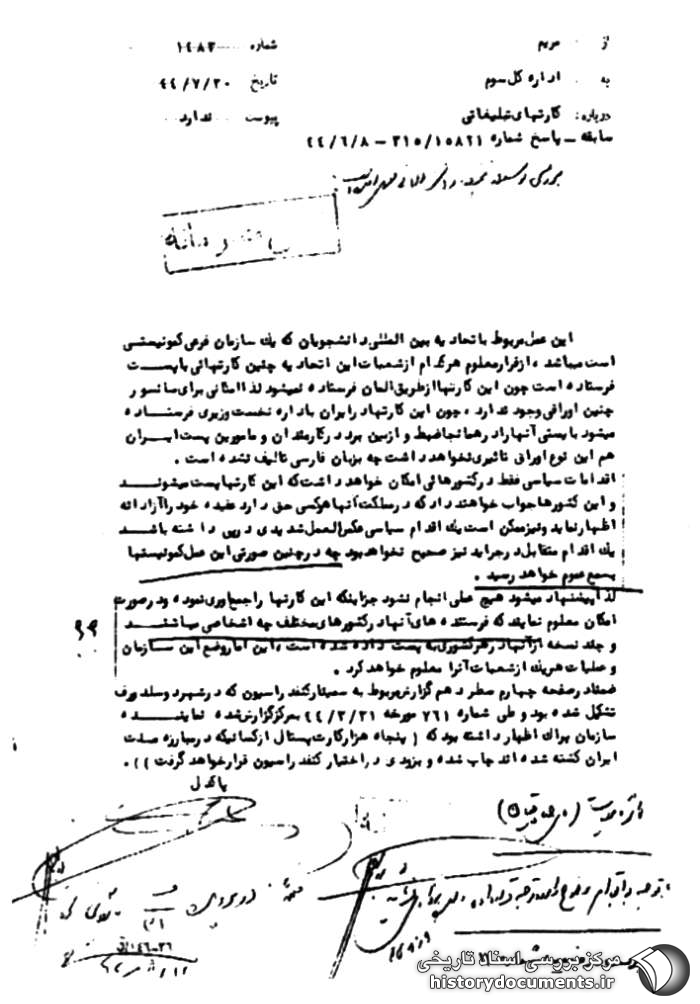 از مریم شماره ۱۴۸۳
به اداره کل سوم تاریخ ۴۴/۷/۲۰
درباره: کارتهای تبلیغاتی پیوست ندارد
سابقه ـ پاسخ شماره ۳۱۵/۱۵۸۲۱ - ۴۴/۶/۸
این عمل مربوط باتحادیه بین المللی دانشجویان که یک سازمان فرعی کمونیستی
است میباشد ، از قرار معلوم هر کدام از شعبات این اتحادیه چنین کارتهائی با پست
فرستاده است چون این کارتها از طریق المان فرستاده نمیشود لذا امکانی برای سانسور
چنین اوراقی وجود ندارد ، چون این کارتها در ایران باداره نخست وزیری فرستاده
میشود بایستی آنها را در همانجا ضبط و از بین برد در کارمندان و مامورین پست ایران
هم این نوع اوراق تاثیری نخواهد داشت چه بزبان فارسی تالیف نشده است .
اقدامات سیاسی فقط در کشورهائی امکان خواهد داشت که این کارتها پست میشوند
و این کشورها جواب خواهند داد که در مملکت آنها هر کسی حق دارد عقیده خود را آزادانه
اظهار نماید و نیز ممکن است یک اقدام سیاسی عکس العمل شدیدی در پی داشته باشد
یک اقدام متقابل در جراید نیز صحیح نخواهد بود چه در چنین صورتی این عمل کمونیستها
بسمع عموم خواهد رسید .
لذا پیشنهاد میشود هیچ عملی انجام نشود جز اینکه این کارتها را جمع اوری نموده و در صورت
امکان معلوم نمایند که فرستنده های آنها در کشورهای مختلف چه اشخاصی میباشند
و چند نسخه از آنها در هر کشوری به پست داده شده است ، این امار وضع این سازمان
و عملیات هر یک از شعبات آنرا معلوم خواهد کرد .
ضمنا در صفحه چهارم سطر دهم گزارش مربوط به سمینار کنفدراسیون که در شهر دوسلدورف
تشکیل شده بود و طی شماره ۷۶۱ مورخه ۴۴/۳/۳۱ بمرکز گزارش شده نماینده
سازمان براک اظهار داشته بود که ( پنجاه هزار کارت پستال از کسانیکه در مبارزه صنفت
ایران کشته شده اند چاپ شده و بزودی در اختیار کنفدراسیون قرار خواهد گرفت ) ) .
مرکز بررسی اسناد تاریخی
historydocuments.ir